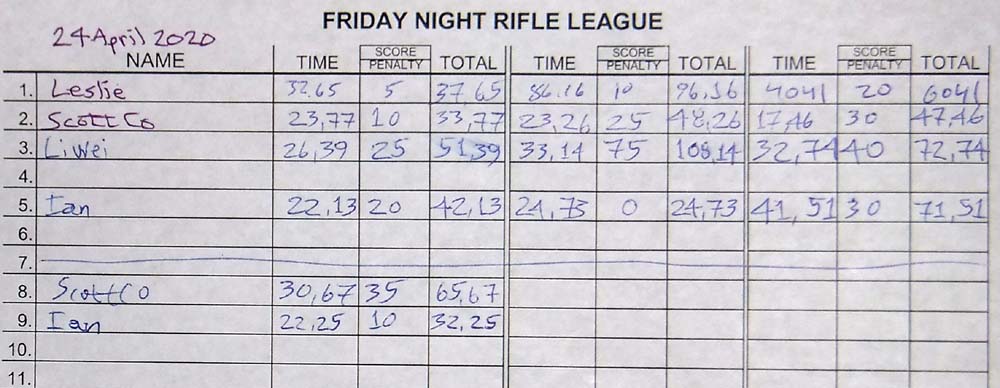 FRIDAY NIGHT RIFLE LEAGUE
24 April 2020
NAME TIME SCORE PENALTY TOTAL TIME SCORE PENALTY TOTAL TIME SCORE PENALTY TOTAL
1. Leslie 32,65 5 37,65 86,16 10 96,16 4041 20 6041
2. ScottCo 23,77 10 33,77 23,26 25 48,26 17,46 30 47,46
3. Liwei 26,39 25 51,39 33,14 75 108,14 32,74 40 72,74
4.
5. Ian 22,13 20 42,13 24,73 0 24,73 41,51 30 71,51
6.
7.
8. ScottCo 30,67 35 65,67
9. Ian 22,25 10 32,25
10.
11.